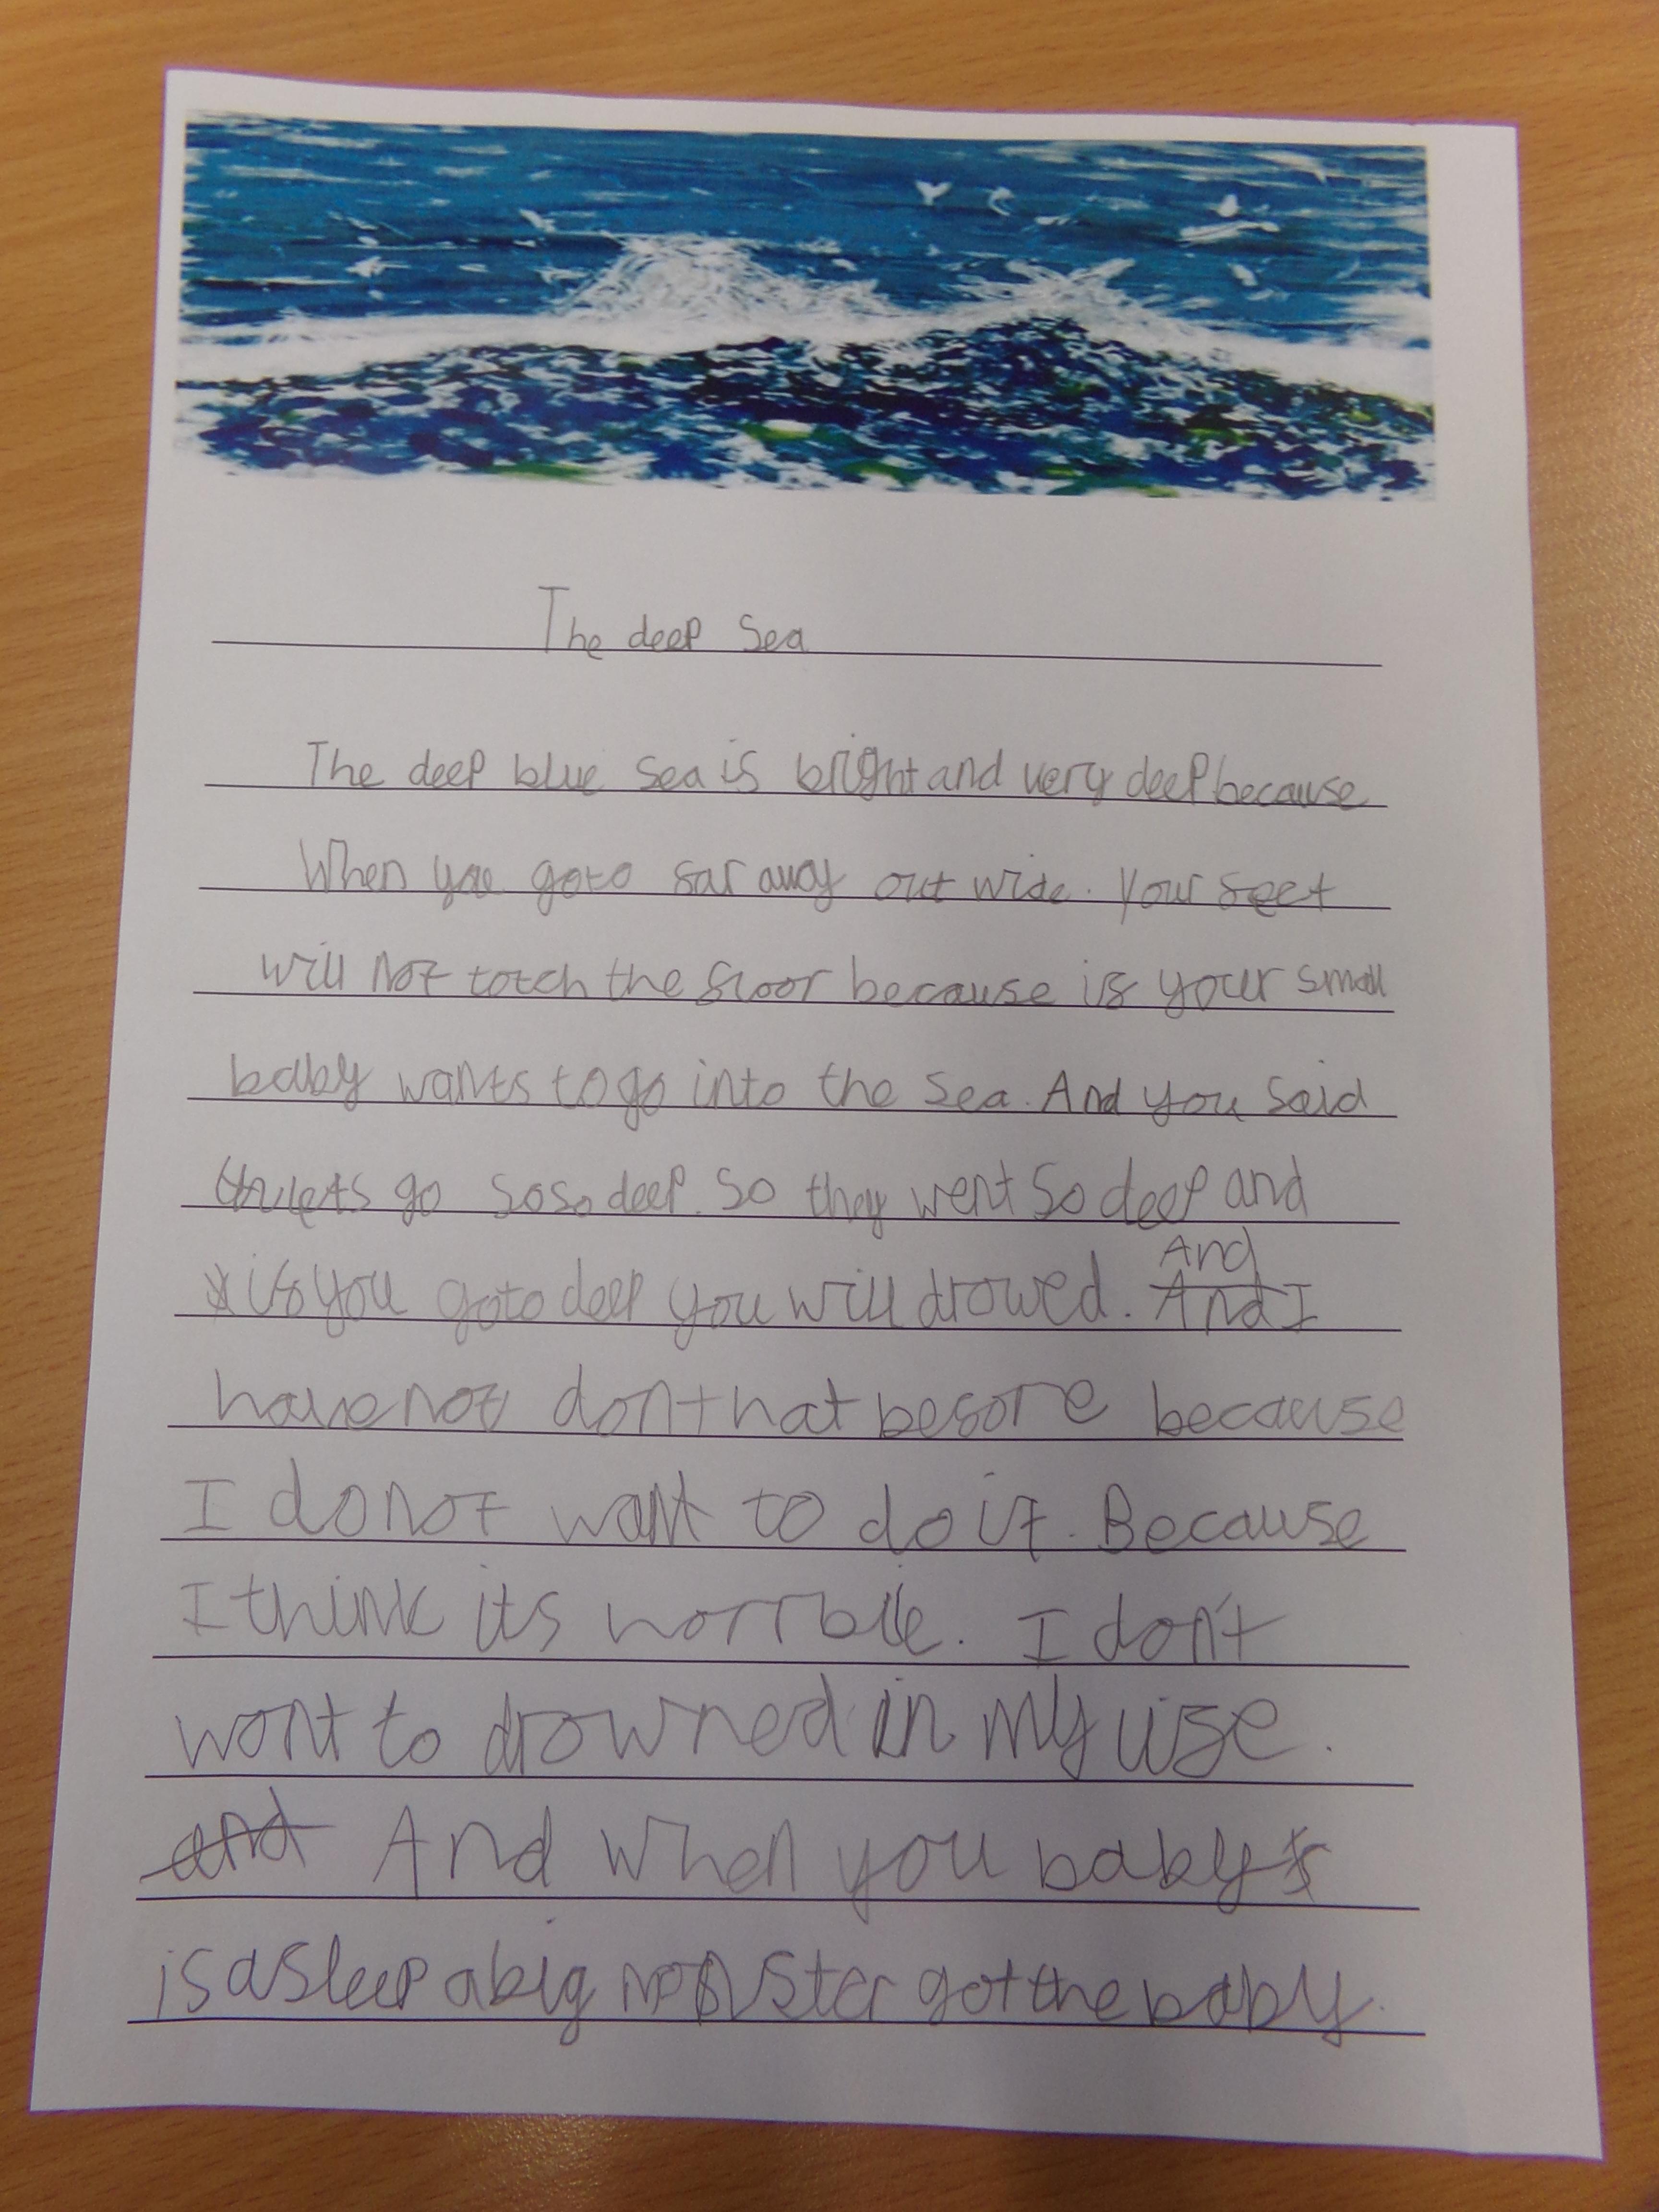 The deep Sea
The deep blue Sea is bright and very deep because
When you go to far away out wide. Your feet
will not totch the floor because if your small
baby wants to go into the Sea. And you Said
lets go so so deep. So they went So deep and
if you go to deep you will drowed. And
And I
have not don that before because
I do not want to do it. Because
I think its horrible. I don't
wont to drowned in my life.
and And when you baby
is asleep a big monster got the baby.